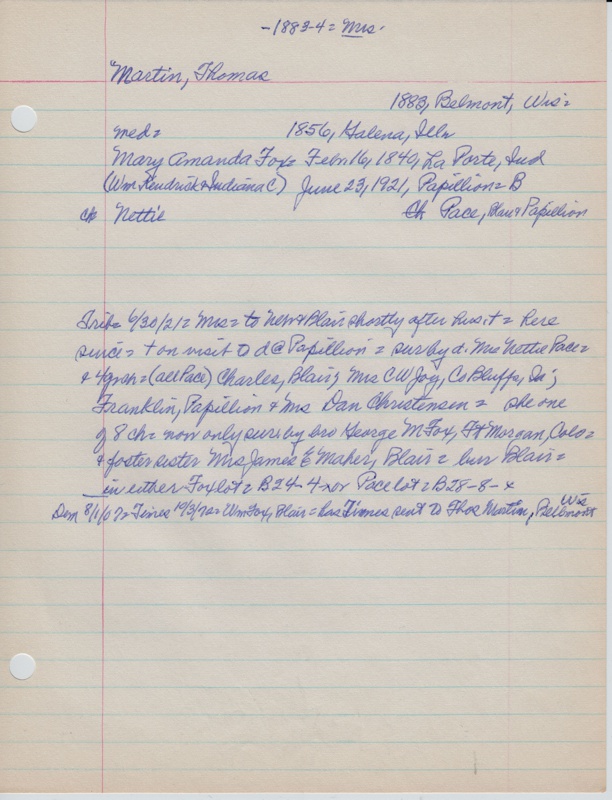 - 1883-4 = Mrs -
Martin, Thomas
1883, Belmont, Wis =
med = 1856, Galena, Ills
Mary Amanda Fox = Febr 16, 1840, La Porte, Ind
(Wm Kendrick & Indiana C) June 23, 1921, Papillion = B
ch Nettie Ch Pace, Blair & Papillion
Trib = 6/30/21 = Mrs = to Nebr & Blair shortly after hus't = here
since = + on visit to d @ Papillion = sur by d. Mrs Nettie Pace =
& 4 grch = (all Pace) Charles, Blair; Mrs C W Joy, Co Bluffs, Ia;
Franklin, Papillion & Mrs Dan Christensen = she one
of 8 ch = now only surv by bro George M Fox, Ft Morgan, Colo =
& foster sister Mrs James E Maher, Blair = bur Blair =
in either Fox lot = B24-4-x or Pace lot = B28-8-x
Dem 8/1/07 = Times 10/3/72 = Wm Fox, Blair = has Times sent to Thos Martin, Bellmont
Wis